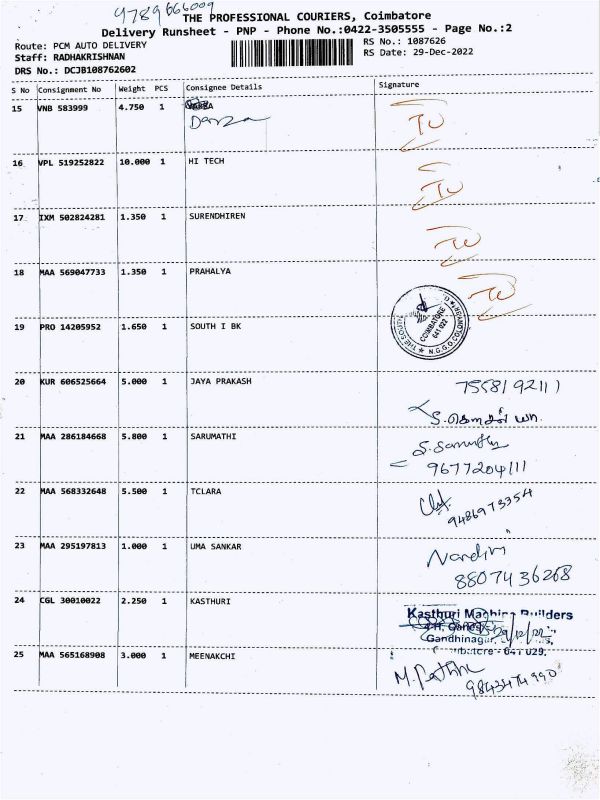 9789666009
THE PROFESSIONAL COURIERS, Coimbatore
Delivery Runsheet - PNP - Phone No.:0422-3505555 - Page No.:2
Route: PCM AUTO DELIVERY
RS No.: 1087626
Staff: RADHAKRISHNAN
RS Date: 29-Dec-2022
DRS No.: DCJB108762602
S No Consignment No Weight PCS Consignee Details Signature
15 VNB 583999 4.750 1
16 VPL 519252822 10.000 1 HI TECH
17 IXM 502824281 1.350 1 SURENDHIREN
18 MAA 569047733 1.350 1 PRAHALYA
19 PRO 14205952 1.650 1 SOUTH I BK
COIMBATORE
641 022
20 KUR 606525664 5.000 1 JAYA PRAKASH
7558192111
21 MAA 286184668 5.800 1 SARUMATHI
9677204111
22 MAA 568332648 5.500 1 TCLARA
9486973354
23 MAA 295197813 1.000 1 UMA SANKAR
Nandin
8807436268
24 CGL 30010022 2.250 1 KASTHURI
Kasthuri Machine Builders
29/12/22
Gandhinagar
25 MAA 565168908 3.000 1 MEENAKCHI
9843474990